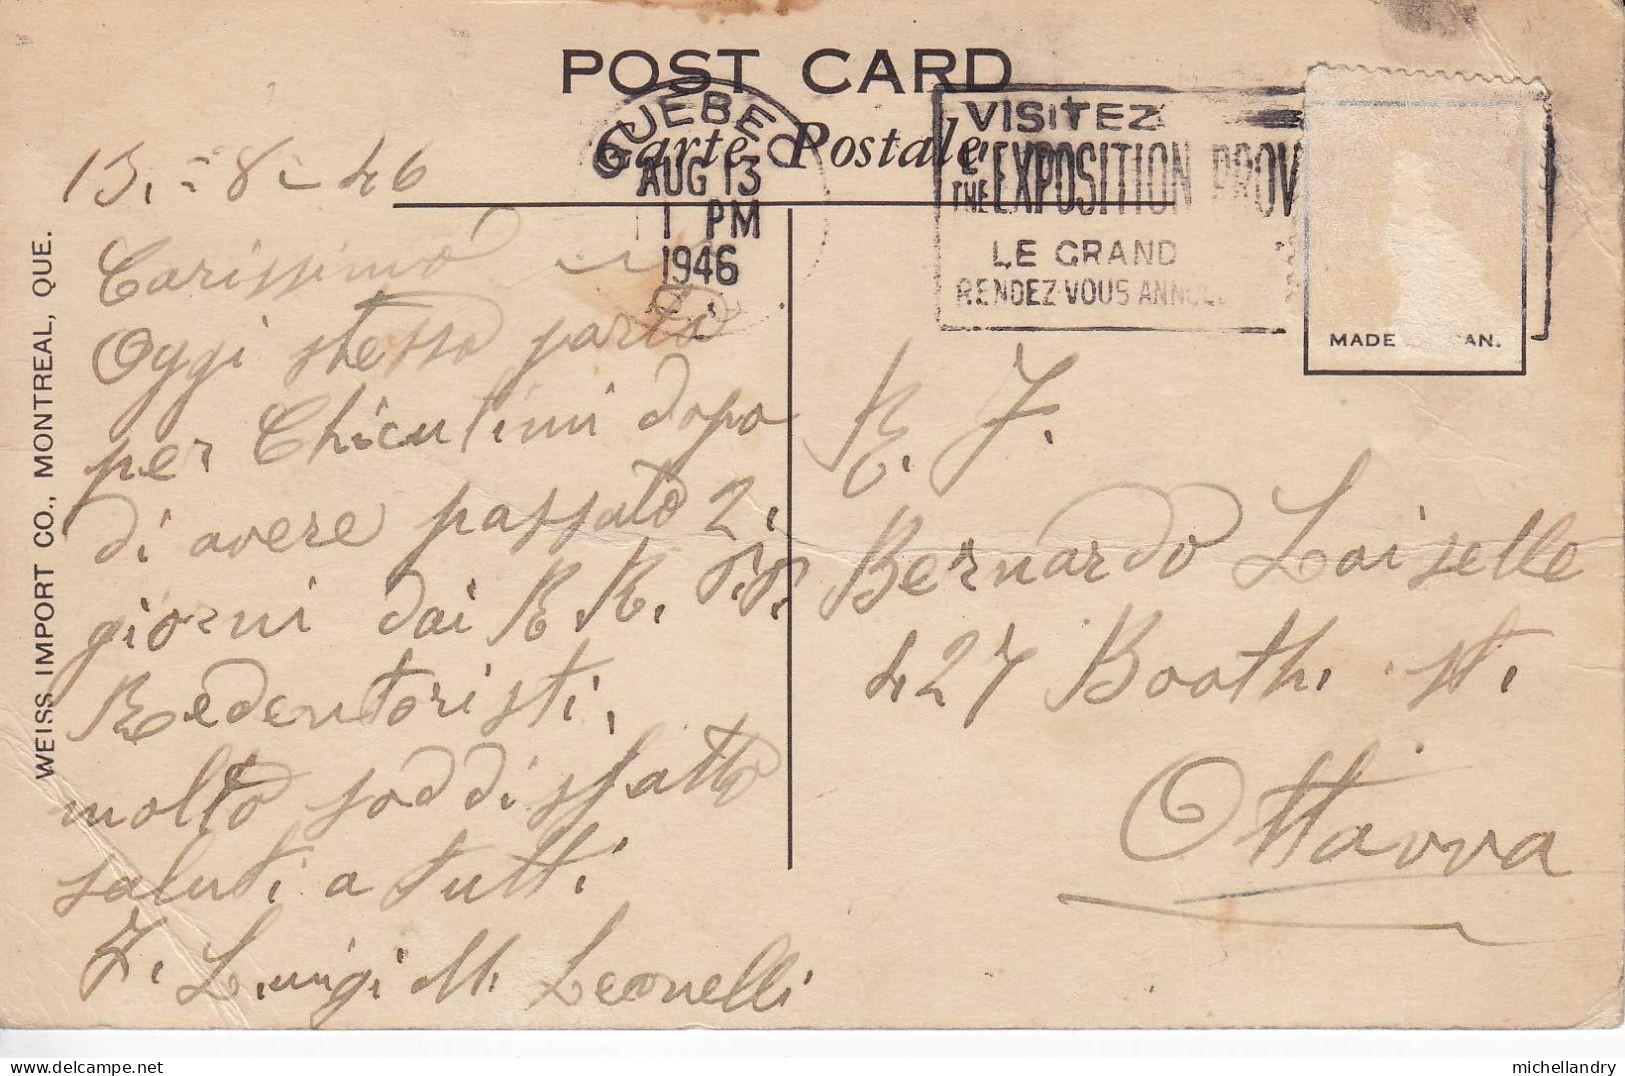 POST CARD
Carte Postale
QUEBEC
AUG 13
1 PM
1946
VISITEZ
L'EXPOSITION PROV
THE
LE GRAND
RENDEZ-VOUS
MADE CAN.
WEISS IMPORT CO., MONTREAL, QUE.
13. - 8 - 46
Carissimo
Oggi stesso parto
per Chicutimi dopo
di avere passato 2.
giorni dai R R. P.P.
Redentoristi,
molto soddisfatto
saluti a tutti
F. Luigi M. Leonelli
R. F.
Bernardo Loiselle
427 Booth. st.
Ottavva
michellandry
www.delcampe.net